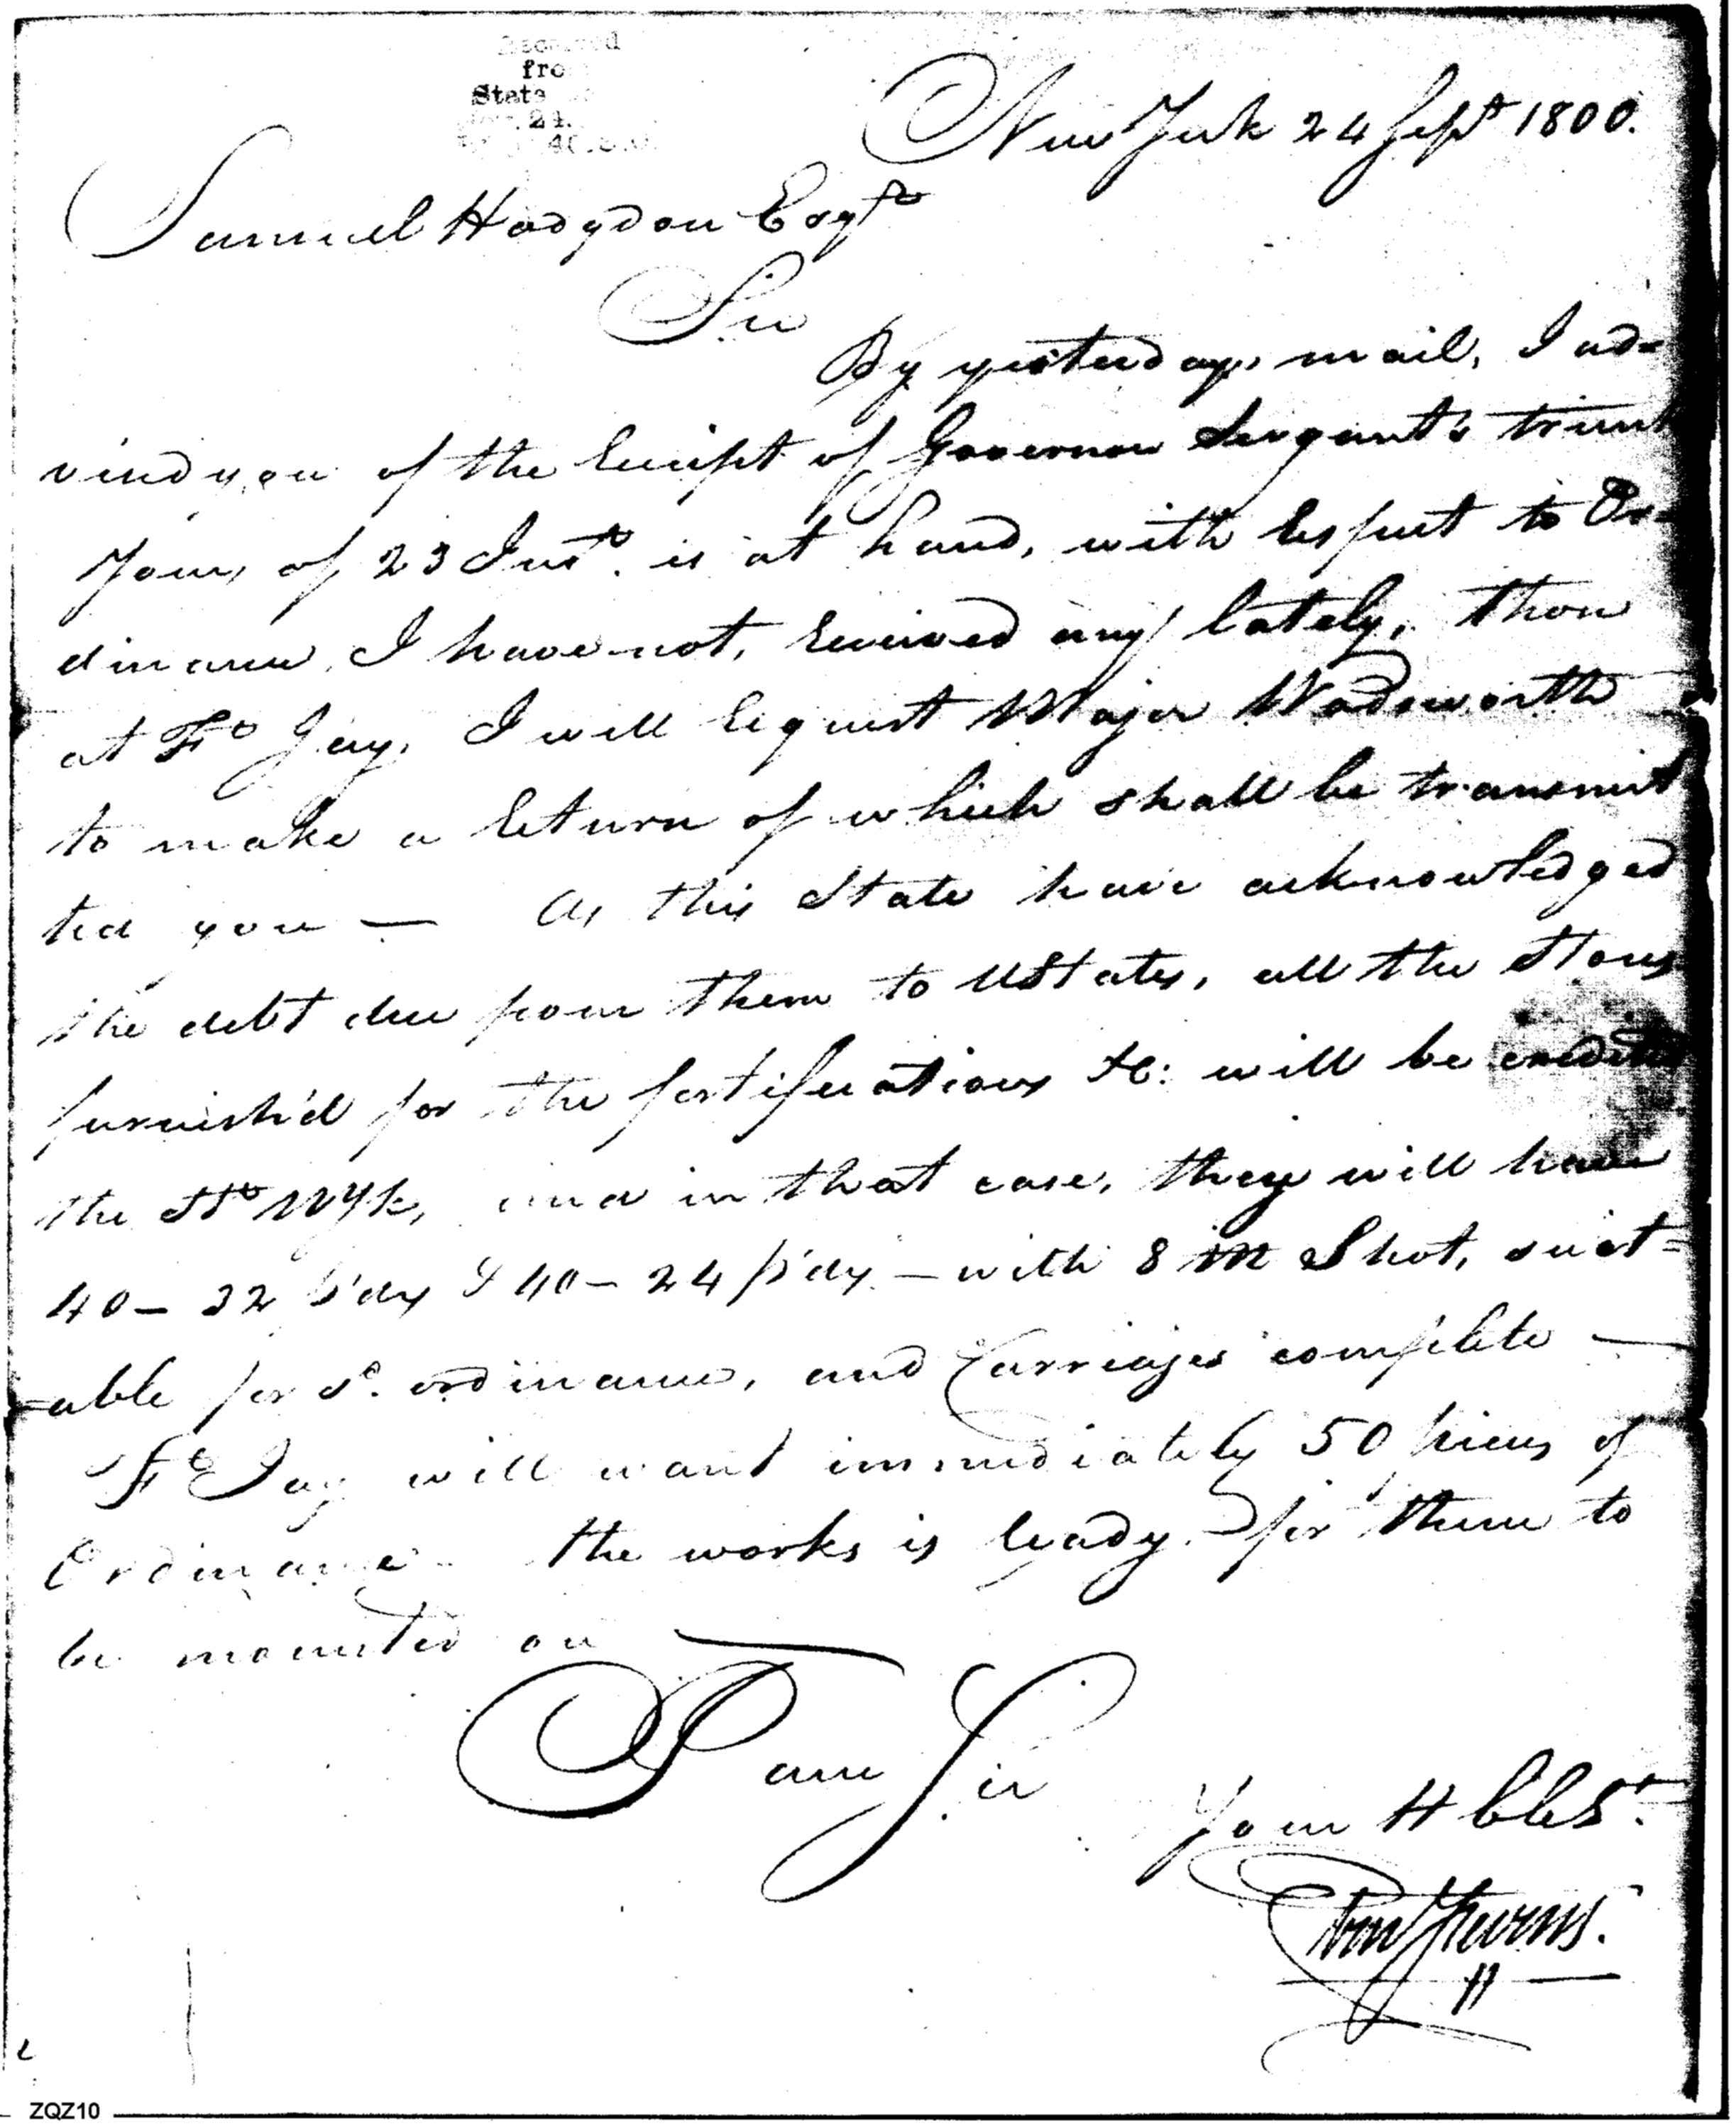 fro
State
24.
New York 24 Sept 1800.
Samuel Hodgdon Esqr
Sir
By yesterdays mail, I ad=
vised you of the receipt of Governor Sergant's trunk
Yours of 23 Inst. is at hand, with respect to Or=
dinance, I have not, received any lately, those
at Ft Jay, I will request Major Wadsworth
to make a return of which shall be transmit
ted you — As this State have acknowledged
the debt due from them to UStates, all the Stores
furnish'd for the fortifications &c: will be credited
the St. NYk, and in that case, they will have
40 – 32 pdrs & 40 – 24 pdrs – with 8 M Shot, suit=
=able for sd. ordinance, and Carriages complete —
Ft Jay will want immediately 50 pieces of
Ordinance – the works is ready for them to
be mounted on
I am Sir
Your H ObSt.
Ebenr Stevens.
ZQZ10